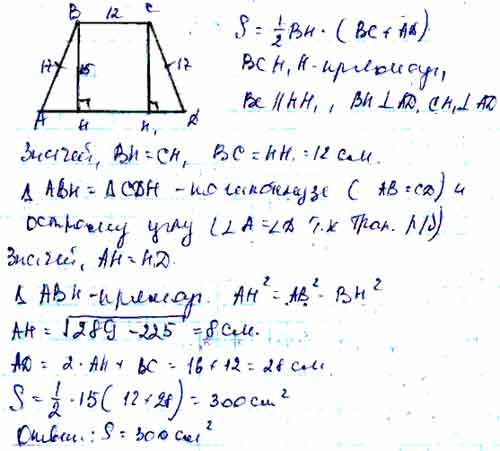 B 12 C
17 15 17
A H H₁ D
S = 1/2 BH · (BC + AD)
BCH₁H - прямоуг,
BC || HH₁, BH ⊥ AD, CH₁ ⊥ AD
Значит, BH = CH₁ BC = HH₁ = 12 см.
Δ ABH = Δ CDH - по гипотенузе (AB = CD) и
острому углу (∠A = ∠D т.к трап. р/б)
Значит, AH = H₁D.
Δ ABH - прямоуг. AH² = AB² - BH²
AH = √289 - 225 = 8 см.
AD = 2 · AH + BC = 16 + 12 = 28 см.
S = 1/2 · 15 (12 + 28) = 300 см²
Ответ: S = 300 см²